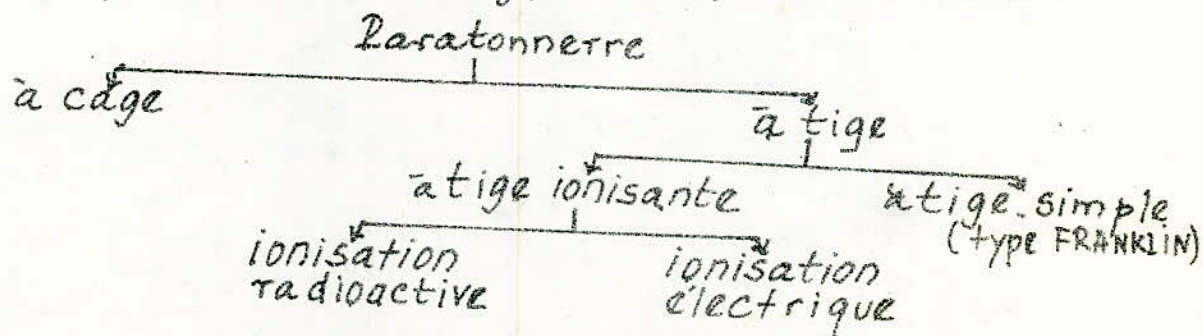 Paratonnerre
à cage
à tige
à tige ionisante
à tige simple
(type FRANKLIN)
ionisation
radioactive
ionisation
électrique